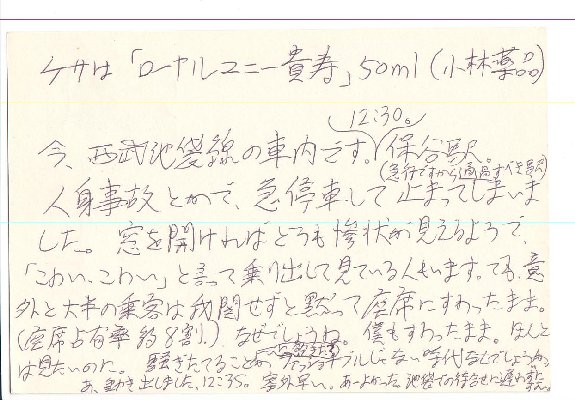 ケサは「ローヤルユニー貴寿」50ml(小林薬品)
12:30。
今、西武池袋線の車内です。保谷駅。
(急行ですから通過すべき駅)
人身事故とかで、急停車して止まってしまいま
した。窓を開ければどうも惨状が見えるようで、
「こわい、こわい」と言って乗り出して見ている人もいます。でも、意
外と大半の乗客は我関せずと黙って座席にすわったまま。
(座席占有率約8割)なぜでしょうね。僕もすわったまま。ほんと
は見たいのに。騒ぎたてることがファッショナブルじゃない時代なんでしょうか。
あ、動き出しました、12:35。案外早い。あーよかった。池袋での待合せに遅れ